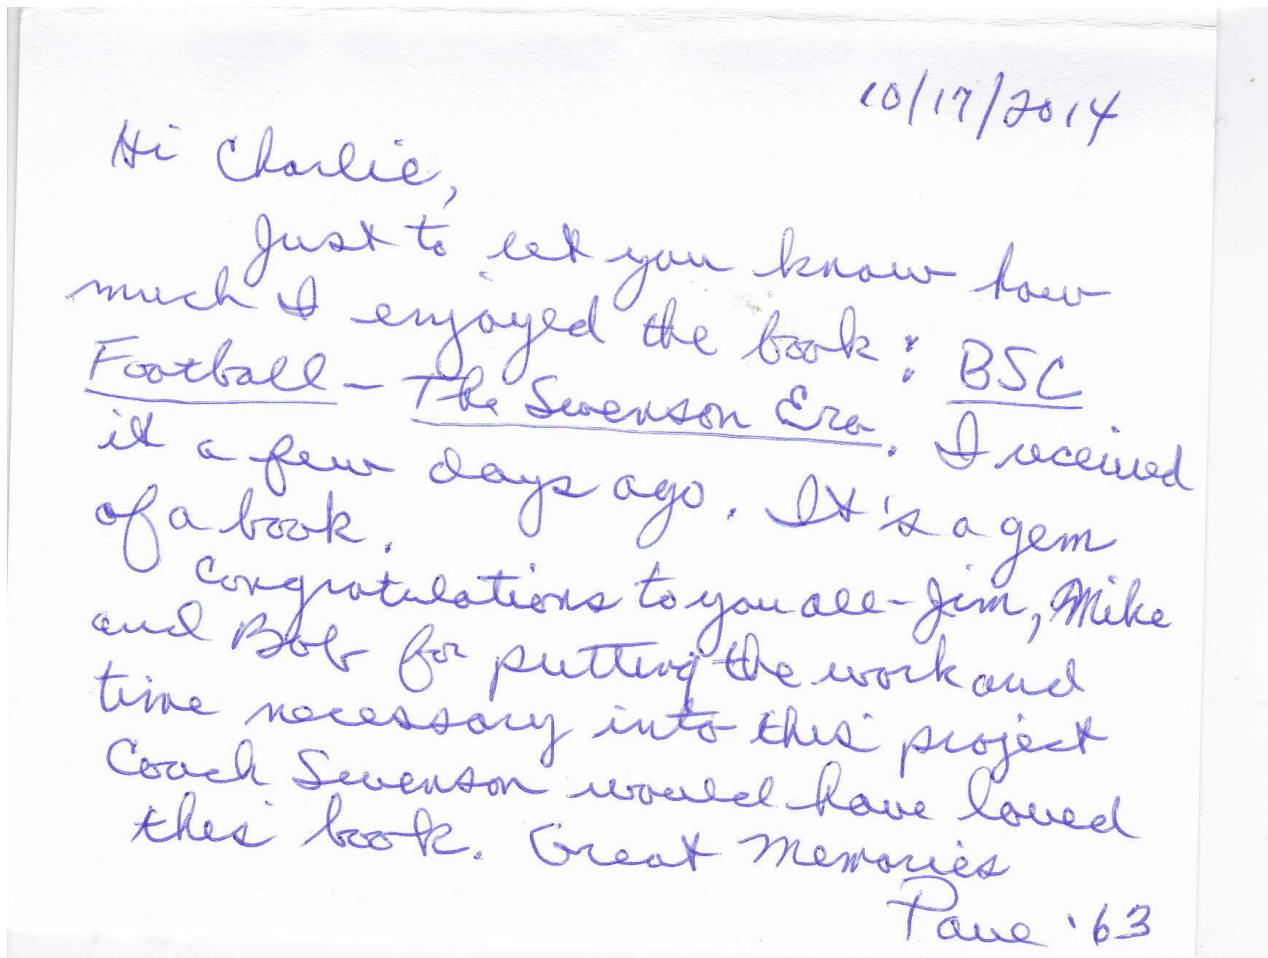 10/17/2014
Hi Charlie,
Just to let you know how
much I enjoyed the book: BSC
Football - The Swenson Era. I received
it a few days ago. It's a gem
of a book.
Congratulations to you all - Jim, Mike
and Bob for putting the work and
time necessary into this project
Coach Swenson would have loved
this book. Great Memories
'63